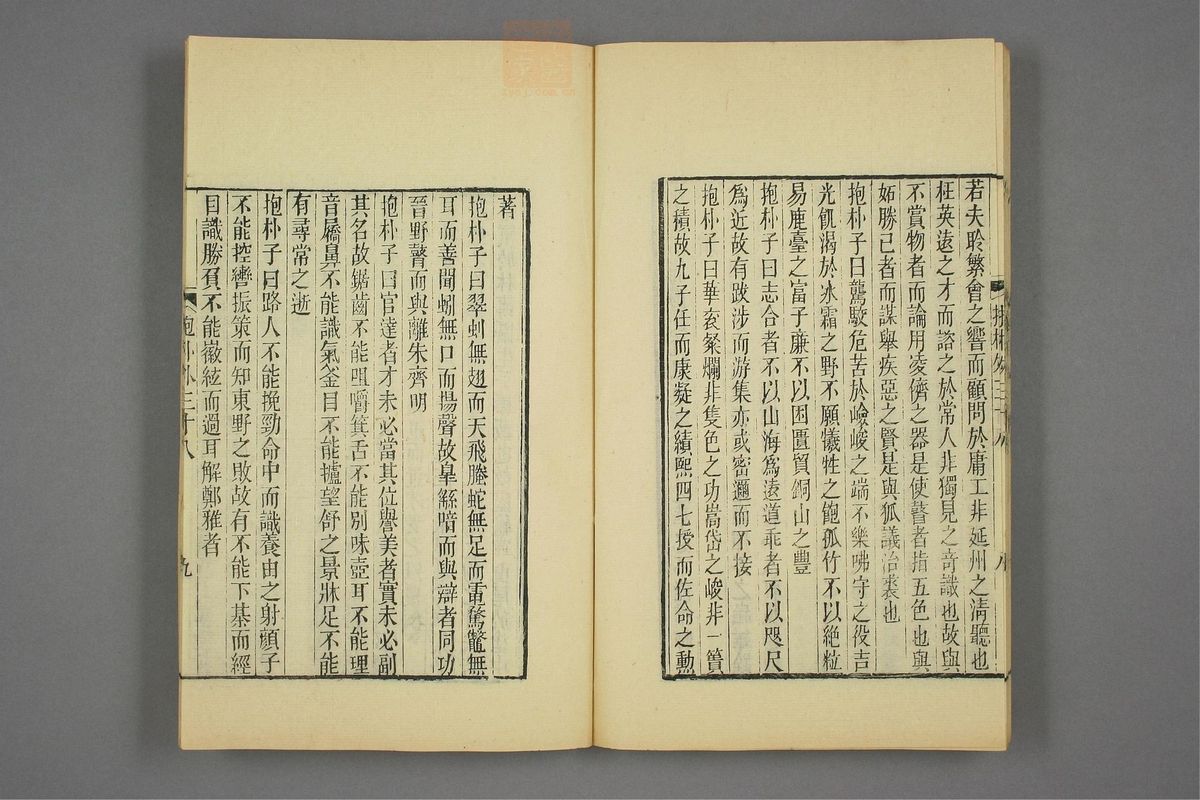 若夫聆繁會之響而顧問於庸工非延州之清聽也
枉英遠之才而諮之於常人非獨見之奇識也故與
不賞物者而論用淩儕之器是使瞽者指五色也與
妬勝己者而謀舉疾惡之賢是與狐議治裘也
抱朴子曰鴛駮危苦於嶮峻之端不樂咈守之役吉
光飢渴於冰霜之野不願犧牲之飽孤竹不以絶粒
易鹿臺之富子廉不以困匱貿銅山之豐
抱朴子曰志合者不以山海爲遠道乖者不以咫尺
爲近故有跋涉而游集亦或密邇而不接
抱朴子曰華衮粲爛非隻色之功嵩岱之峻非一簣
之積故九子任而康凝之績熙四七授而佐命之勳
著
抱朴子曰翠虯無翅而天飛螣蛇無足而電騖鼈無
耳而善聞蚓無口而揚聲故皋繇喑而與辯者同功
晉野瞽而與離朱齊明
抱朴子曰官達者才未必當其位譽美者實未必副
其名故鋸齒不能咀嚼箕舌不能別味壺耳不能理
音屩鼻不能識氣釜目不能攄望舒之景牀足不能
有尋常之逝
抱朴子曰路人不能挽勁命中而識養由之射顔子
不能控轡振策而知東野之敗故有不能下棊而經
目識勝負不能徽絃而過耳解鄭雅者
抱朴外三十八
九